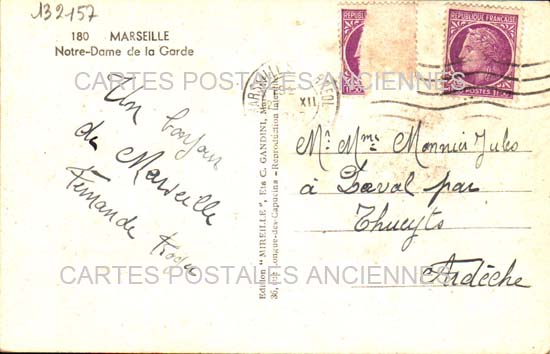 132157
180 MARSEILLE
Notre-Dame de la Garde
Un bonjour
de Marseille
Fernande
RÉPUBLIQUE FRANÇAISE
POSTES
MARSEILLE
XII
Edition "MIREILLE", Ets C. GANDINI, Marseille - Reproduction interdite
36, rue Longue-des-Capucins
Mr. Mme Monnier Jules
à Laval par
Thueyts
Ardèche
CARTES POSTALES ANCIENNES
CARTES POSTALES ANCIENNES